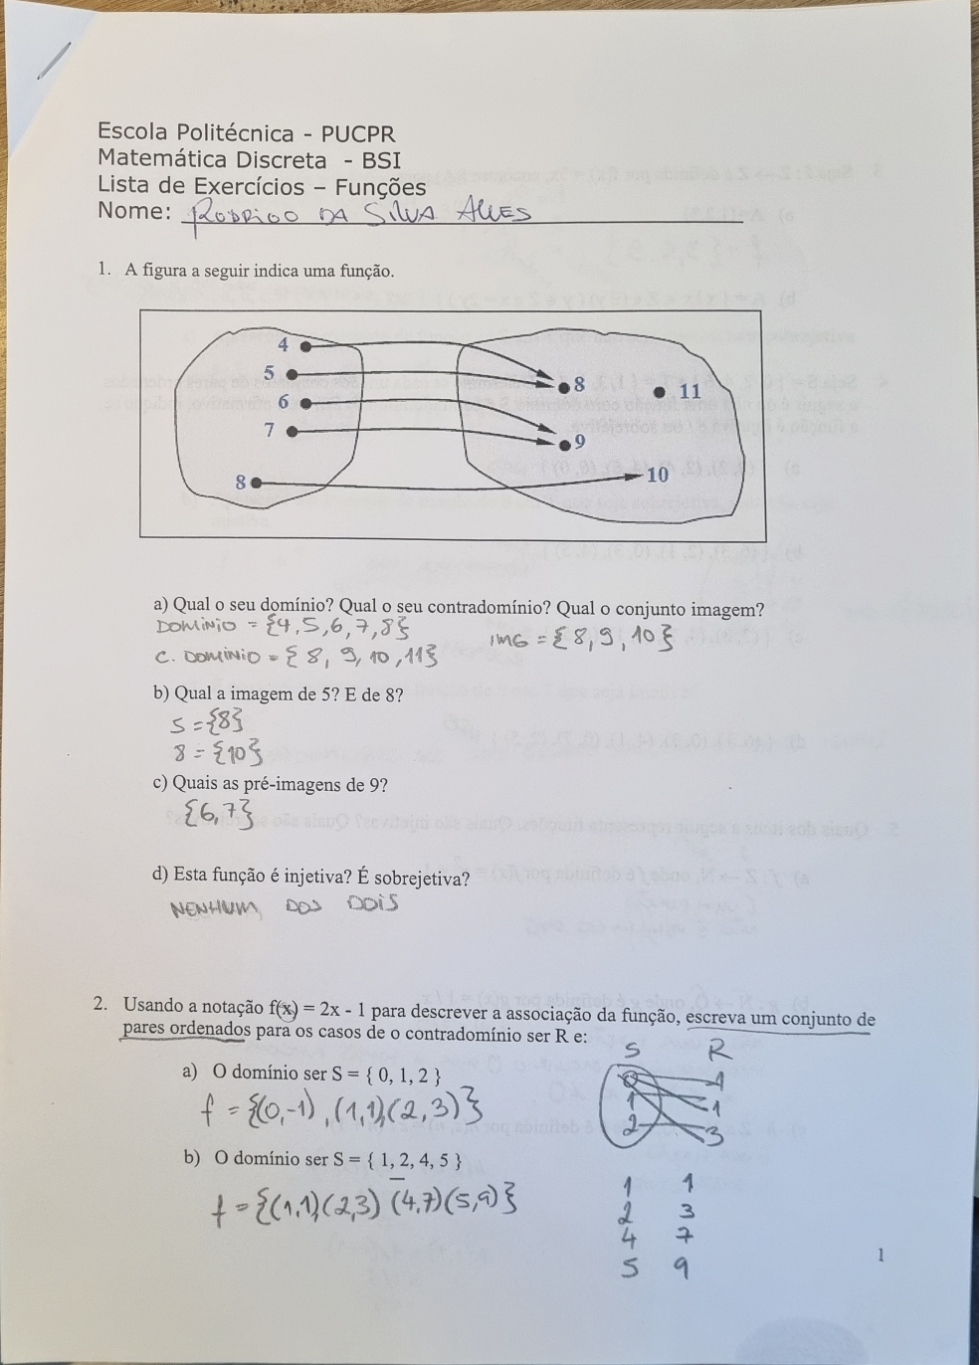 Escola Politécnica - PUCPR
Matemática Discreta - BSI
Lista de Exercícios – Funções
Nome: RODRIGO DA SILVA ALVES
1. A figura a seguir indica uma função.
4
5
6
7
8
8
11
9
10
a) Qual o seu domínio? Qual o seu contradomínio? Qual o conjunto imagem?
DOMINIO = {4,5,6,7,8}
IMG = {8,9,10}
C. DOMINIO = {8, 9, 10, 11}
b) Qual a imagem de 5? E de 8?
5 = {8}
8 = {10}
c) Quais as pré-imagens de 9?
{6,7}
d) Esta função é injetiva? É sobrejetiva?
NENHUM DOS DOIS
2. Usando a notação f(x) = 2x - 1 para descrever a associação da função, escreva um conjunto de
pares ordenados para os casos de o contradomínio ser R e:
S R
a) O domínio ser S = { 0, 1, 2 }
f = {(0,-1),(1,1)(2,3)}
0 -1
1 1
2 3
b) O domínio ser S = { 1, 2, 4, 5 }
f = {(1,1)(2,3)(4,7)(5,9)}
1 1
2 3
4 7
5 9
1